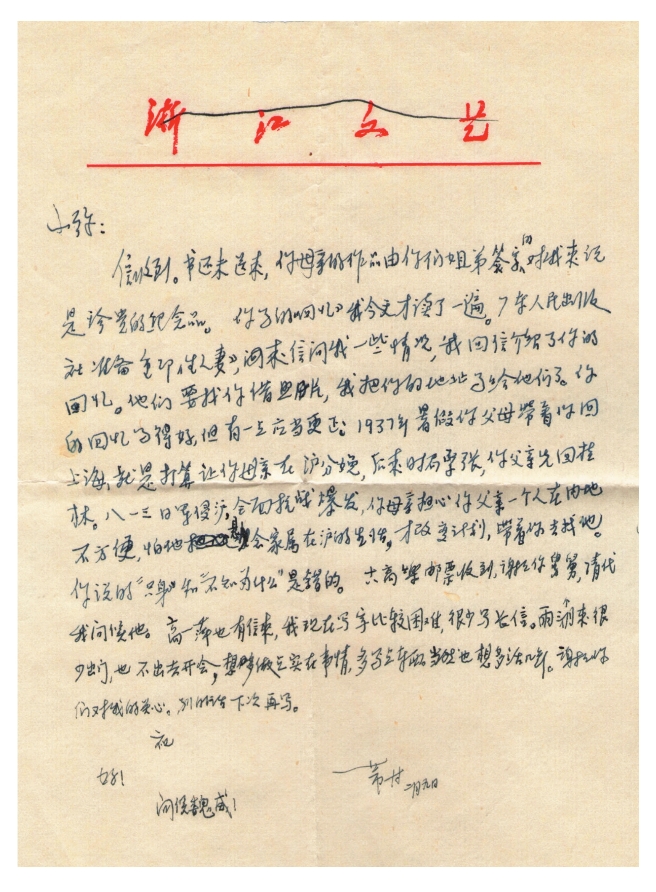 浙江文艺
小弥：
信收到。书还未送来，你母亲的作品由你们姐弟签名的对我来说
是珍贵的纪念品。你写的《回忆》我今天才读了一遍。广东人民出版
社准备重印《佳人妻》，回来信问我一些情况，我回信介绍了你的
回忆。他们要找你借照片，我把你的地址写给他们了。你
的回忆写得好，但有一点应当更正：1937年暑假你父母带着你回
上海，就是打算让你母亲在沪分娩，后来时局紧张，你父亲先回桂
林。八一三日军侵沪，全面抗战爆发，你母亲担心你父亲一个人在内地
不方便，怕他挂念家属在沪的生活，才改变计划，带着你去找他。
你说的“只身”和“不知为什么”是错的。邮票收到，谢谢你舅舅，请代
我问候他。高一萍也有信来，我现在写字比较困难，很少写长信。两月来很
少出门，也不出去开会，想多做点实在事情，多写点东西，当然也想多活几年。谢谢你
们对我的关心。别的话下次再写。
祝
好！
芾甘 二月九日
问候魏威！